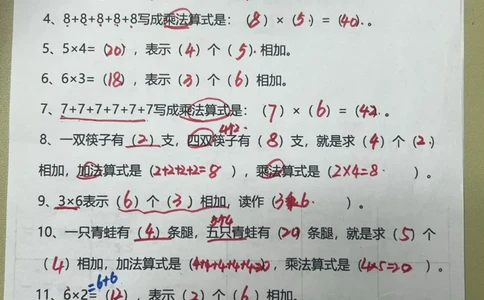 4、8+8+8+8+8写成乘法算式是：（8）×（5）=（40）。
5、5×4=（20），表示（4）个（5）相加。
6、6×3=（18），表示（3）个（6）相加。
7、7+7+7+7+7+7写成乘法算式是：（7）×（6）=（42）。
4+2
8、一双筷子有（2）支，四双筷子有（8）支，就是求（4）个（2）
相加，加法算式是（2+2+2+2=8），乘法算式是（2×4=8）。
9、3×6表示（6）个（3）相加，读作（3乘6）。
5个4
10、一只青蛙有（4）条腿，五只青蛙有（20）条腿，就是求（5）个
（4）相加，加法算式是（4+4+4+4+4=20），乘法算式是（4×5=20）。
=6+6
11、6×2=（12），表示（2）个（6）相加。